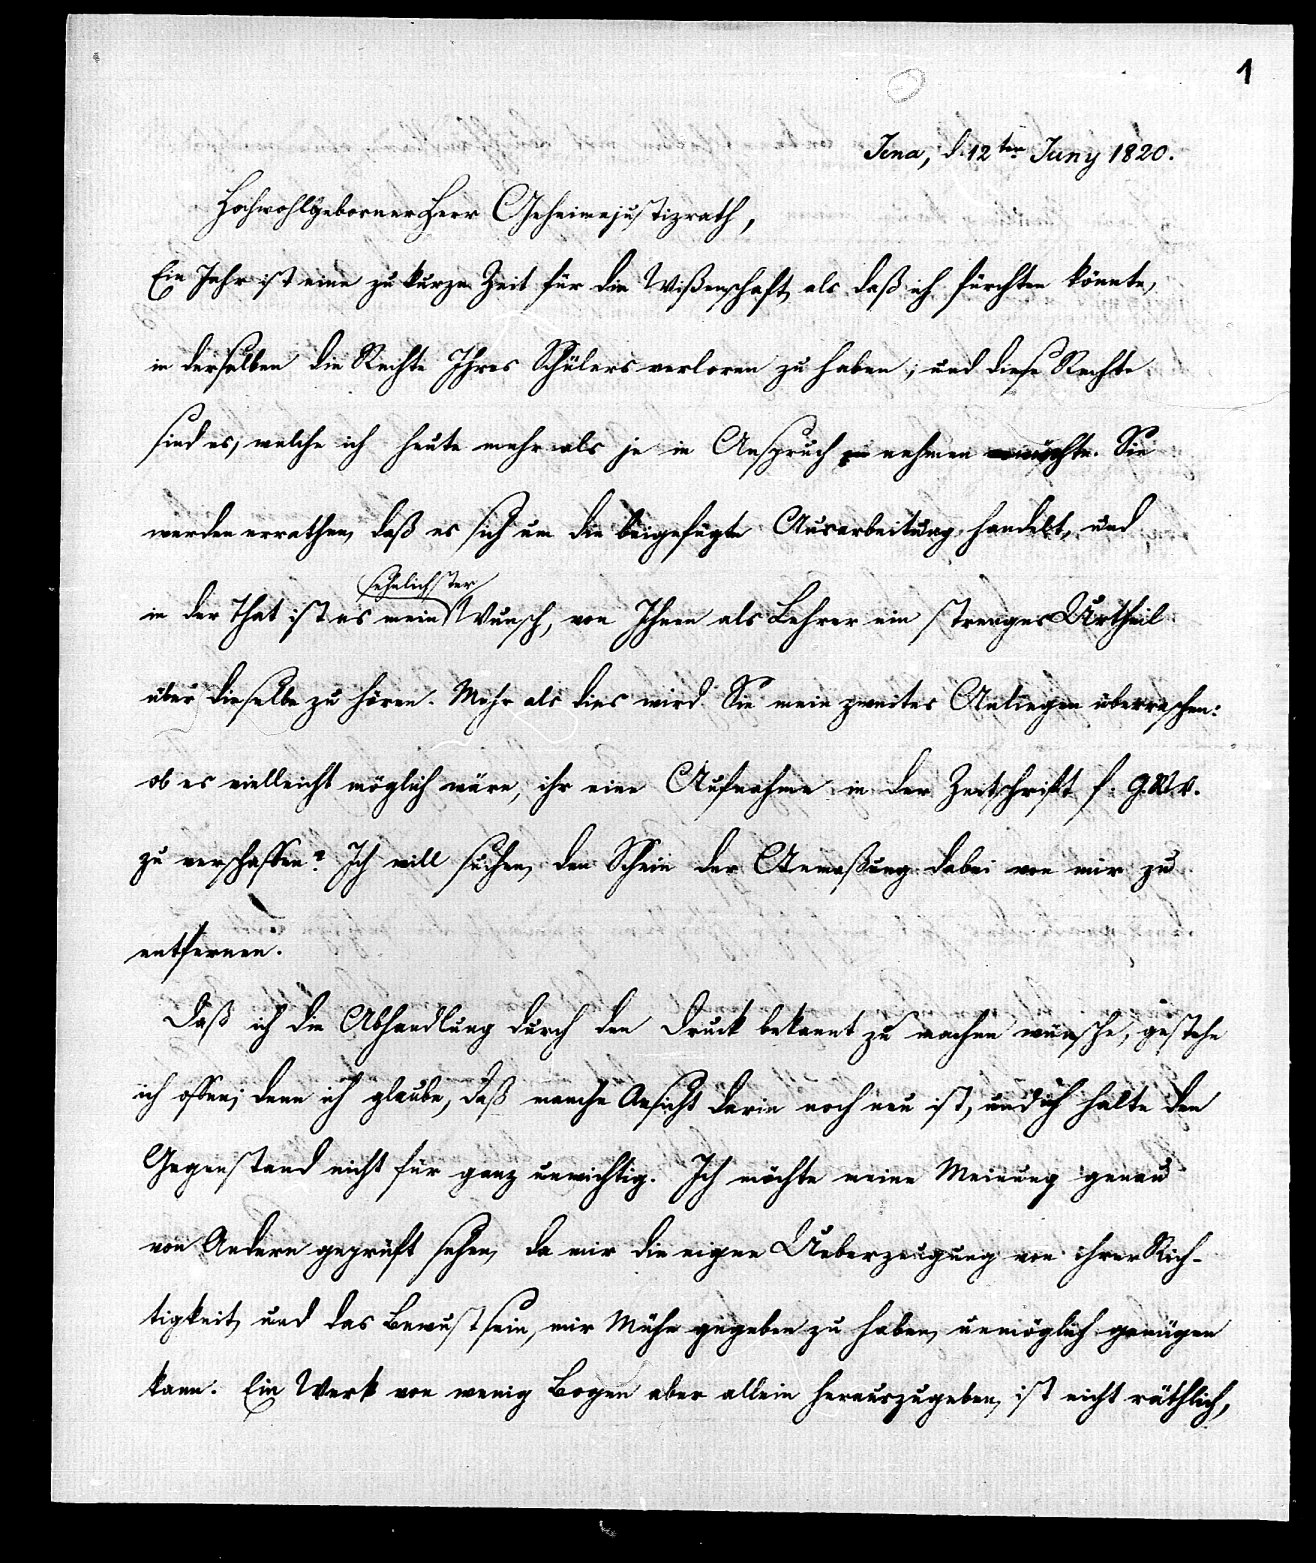 1
Jena, d. 12ten Juny 1820.
Hochwohlgeborner Herr Geheimejustizrath,
Ein Jahr ist eine zu kurze Zeit für die Wißenschaft, als daß ich fürchten könnte,
in derselben die Rechte Ihres Schülers verloren zu haben; und diese Rechte
sind es, welche ich heute mehr als je in Anspruch nehmen möchte. Sie
werden errathen, daß es sich um die beigefügte Ausarbeitung handelt, und
sehnlichster
in der That ist es mein Wunsch, von Ihnen als Lehrer ein strenges Urtheil
über dieselbe zu hören. Mehr als dies wird Sie mein zweites Anliegen überraschen:
ob es vielleicht möglich wäre, ihr eine Aufnahme in der Zeitschrift f. g. RW.
zu verschaffen? Ich will suchen, den Schein der Anmaßung dabei von mir zu
entfernen.
Daß ich die Abhandlung durch den Druck bekannt zu machen wünsche, gestehe
ich offen; denn ich glaube, daß manche Ansicht darin noch neu ist, und ich halte den
Gegenstand nicht für ganz unwichtig. Ich möchte meine Meinung genau
von Andern geprüft sehen, da mir die eigne Ueberzeugung von ihrer Rich-
tigkeit, und das Bewustsein, mir Mühe gegeben zu haben, unmöglich genügen
kann. Ein Werk von wenig Bogen aber allein herauszugeben, ist nicht räthlich,